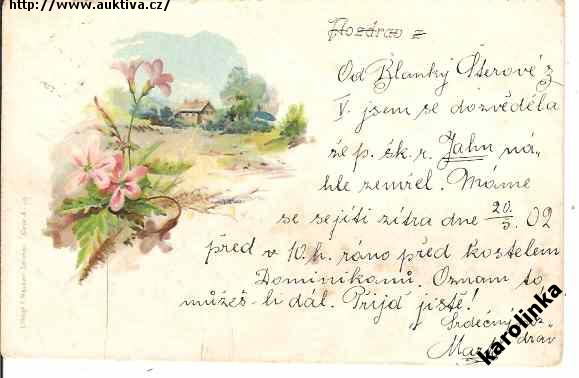 http://www.auktiva.cz/
Pozdrav z
Od Blanky Šterové z
V. jsem se dozvěděla
že p. šk. r. Jahn ná-
hle zemřel. Máme
se sejíti zítra dne 20/5. 02
před v 10. h. ráno před kostelem
Dominikanů. Oznam to
můžeš-li dál. Přijď jistě!
Srdečný poz-
drav
karolinka